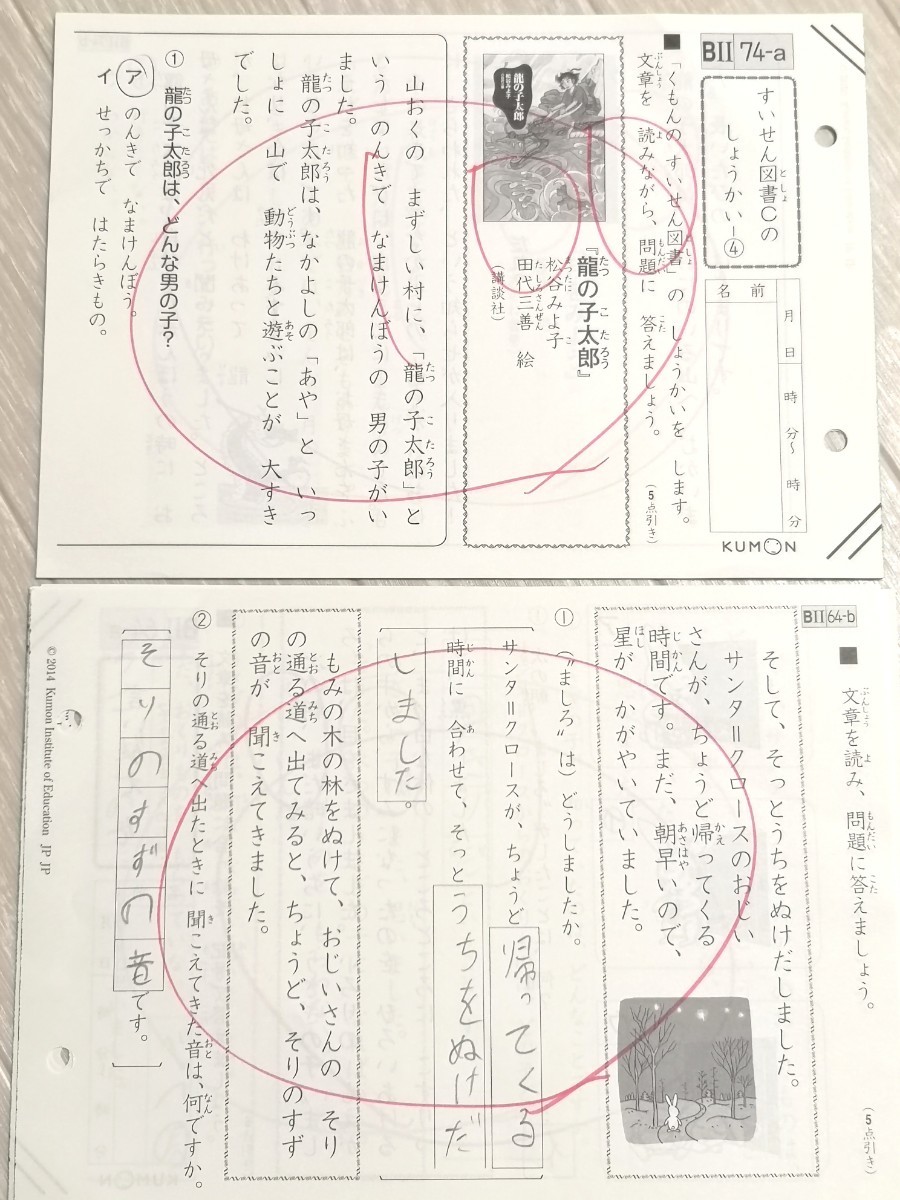 BII 74-a
すいせん図書Cの
しょうかい―④
月 日 時 分〜 時 分
名前
KUMON
■「くもんの すいせん図書」の しょうかいを します。
文章を 読みながら、問題に 答えましょう。
(5点引き)
龍の子太郎
『龍の子太郎』
松谷みよ子
田代三善 絵
(講談社)
山おくの まずしい村に、「龍の子太郎」と
いう のんきで なまけんぼうの 男の子がい
ました。
龍の子太郎は、なかよしの「あや」と いっ
しょに 山で 動物たちと遊ぶことが 大すき
でした。
① 龍の子太郎は、どんな男の子?
ア のんきで なまけんぼう。
イ せっかちで はたらきもの。
BII 64-b
■ 文章を読み、問題に答えましょう。
(5点引き)
そして、そっとうちをぬけだしました。
サンタ=クロースのおじい
さんが、ちょうど帰ってくる
時間です。まだ、朝早いので、
星が かがやいていました。
① (“ましろ”は)どうしましたか。
サンタ=クロースが、ちょうど 帰ってくる
時間に 合わせて、そっと うちをぬけだ
しました。
もみの木の林をぬけて、おじいさんの そり
の通る道へ出てみると、ちょうど、そりのすず
の音が 聞こえてきました。
② そりの通る道へ出たときに 聞こえてきた音は、何ですか。
そりのすずの音です。
© 2014 Kumon Institute of Education JP JP